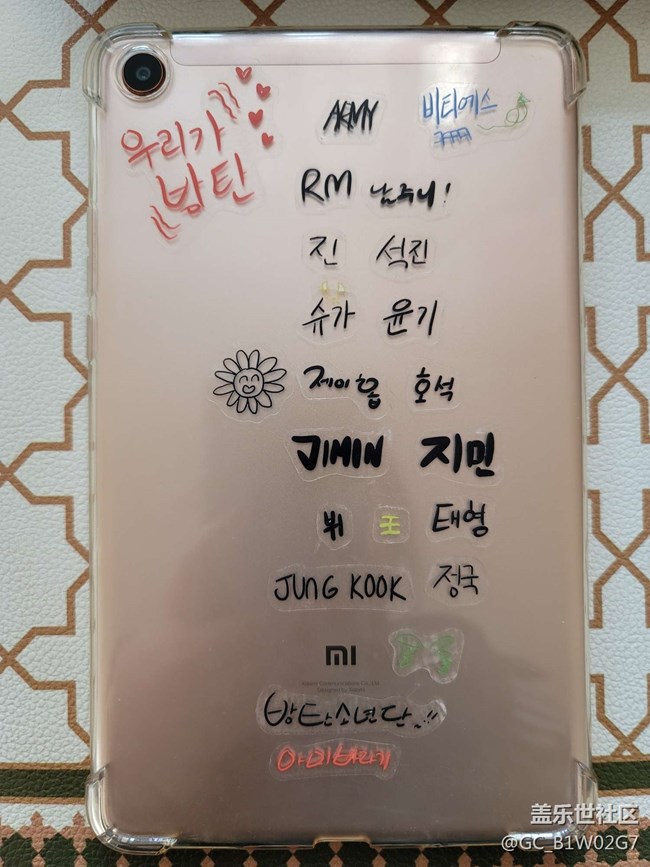 우리가
방탄
ARMY 비티에스
RM 남주니!
진 석진
슈가 윤기
제이홉 호석
JIMIN 지민
뷔 王 태형
JUNG KOOK 정국
MI
방탄소년단..!!
아미바라기
盖乐世社区
@GC_B1W02G7